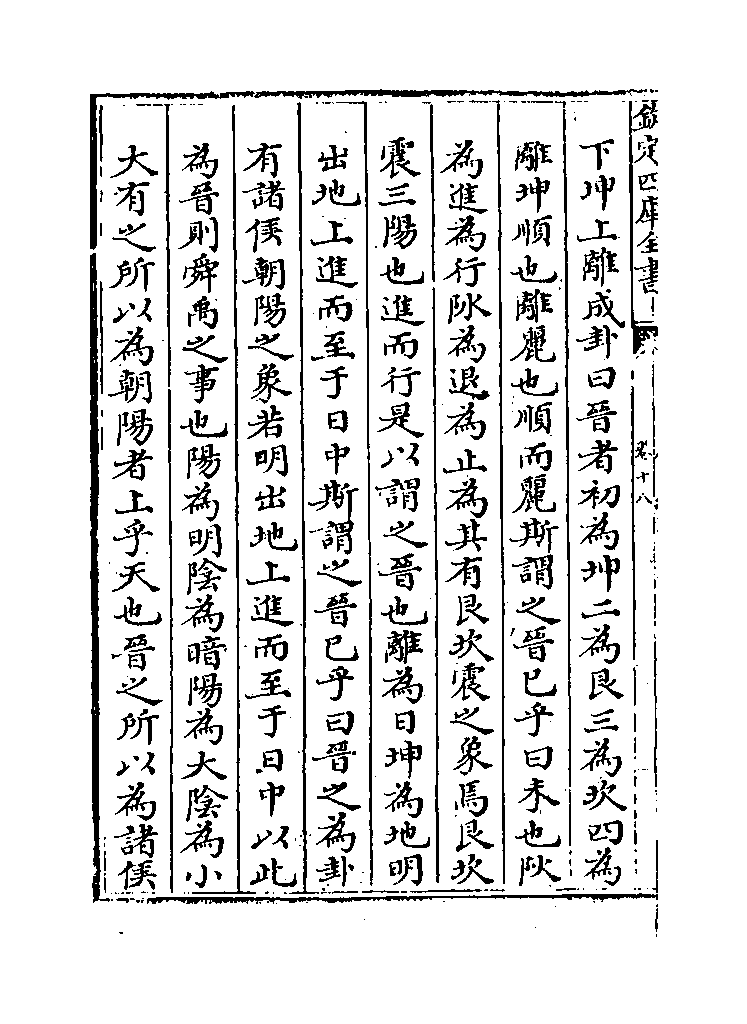 欽定四庫全書
卷十八
下坤上離成卦曰晉者初為坤二為艮三為坎四為
離坤順也離麗也順而麗斯謂之晉已乎曰未也阦
為進為行阥為退為止為其有艮坎震之象焉艮坎
震三陽也進而行是以謂之晉也離為日坤為地明
出地上進而至于日中斯謂之晉已乎曰晉之為卦
有諸侯朝陽之象若明出地上進而至于日中以此
為晉則舜禹之事也陽為明陰為暗陽為大陰為小
大有之所以為朝陽者上乎天也晉之所以為諸侯